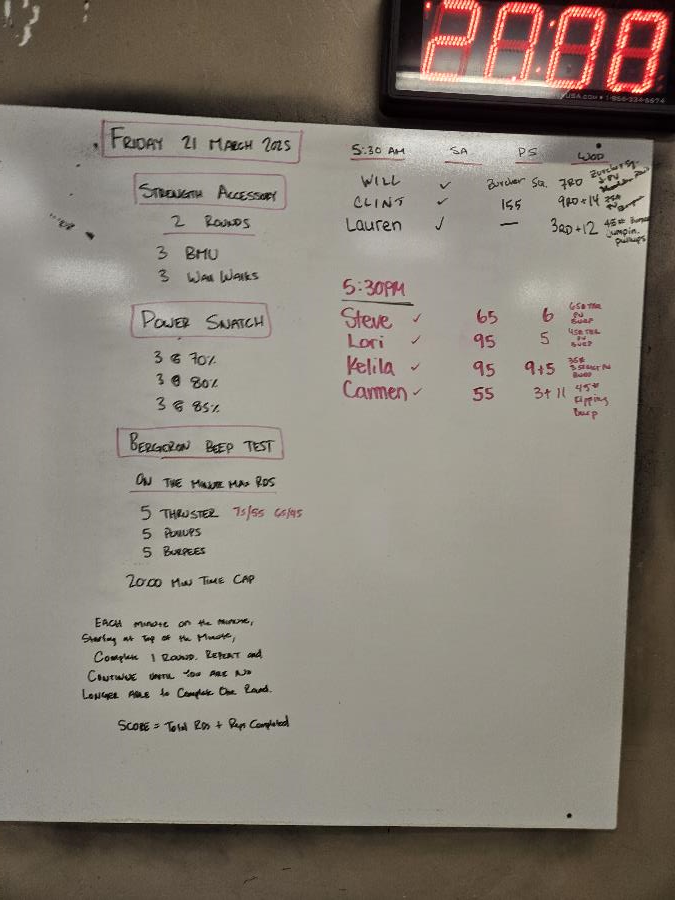 20:00
FRIDAY 21 MARCH 2025
STRENGTH ACCESSORY
2 ROUNDS
3 BMU
3 WALL WALKS
POWER SNATCH
3 @ 70%
3 @ 80%
3 @ 85%
BERGERON BEEP TEST
ON THE MINUTE MAX RDS
5 THRUSTER 75/55 65/45
5 PULLUPS
5 BURPEES
20:00 MIN TIME CAP
EACH minute on the minute,
Starting at Top of the Minute,
Complete 1 ROUND. REPEAT and
CONTINUE UNTIL YOU ARE NO
LONGER ABLE to Complete One Round.
SCORE = Total RDS + Reps Completed
5:30 AM SA PS WOD
WILL ✓ Zurcher Sq. 7RD
CLINT ✓ 155 9RD+14 35#
Lauren ✓ — 3RD+12 45# Burpee
Jumpin.
pullups
5:30PM
Steve ✓ 65 6 65# THR
PU
BURP
Lori ✓ 95 5 45# THR
PU
BURP
Kelila ✓ 95 9+5 35#
BURP
Carmen ✓ 55 3+11 45#
Kipping
Burp